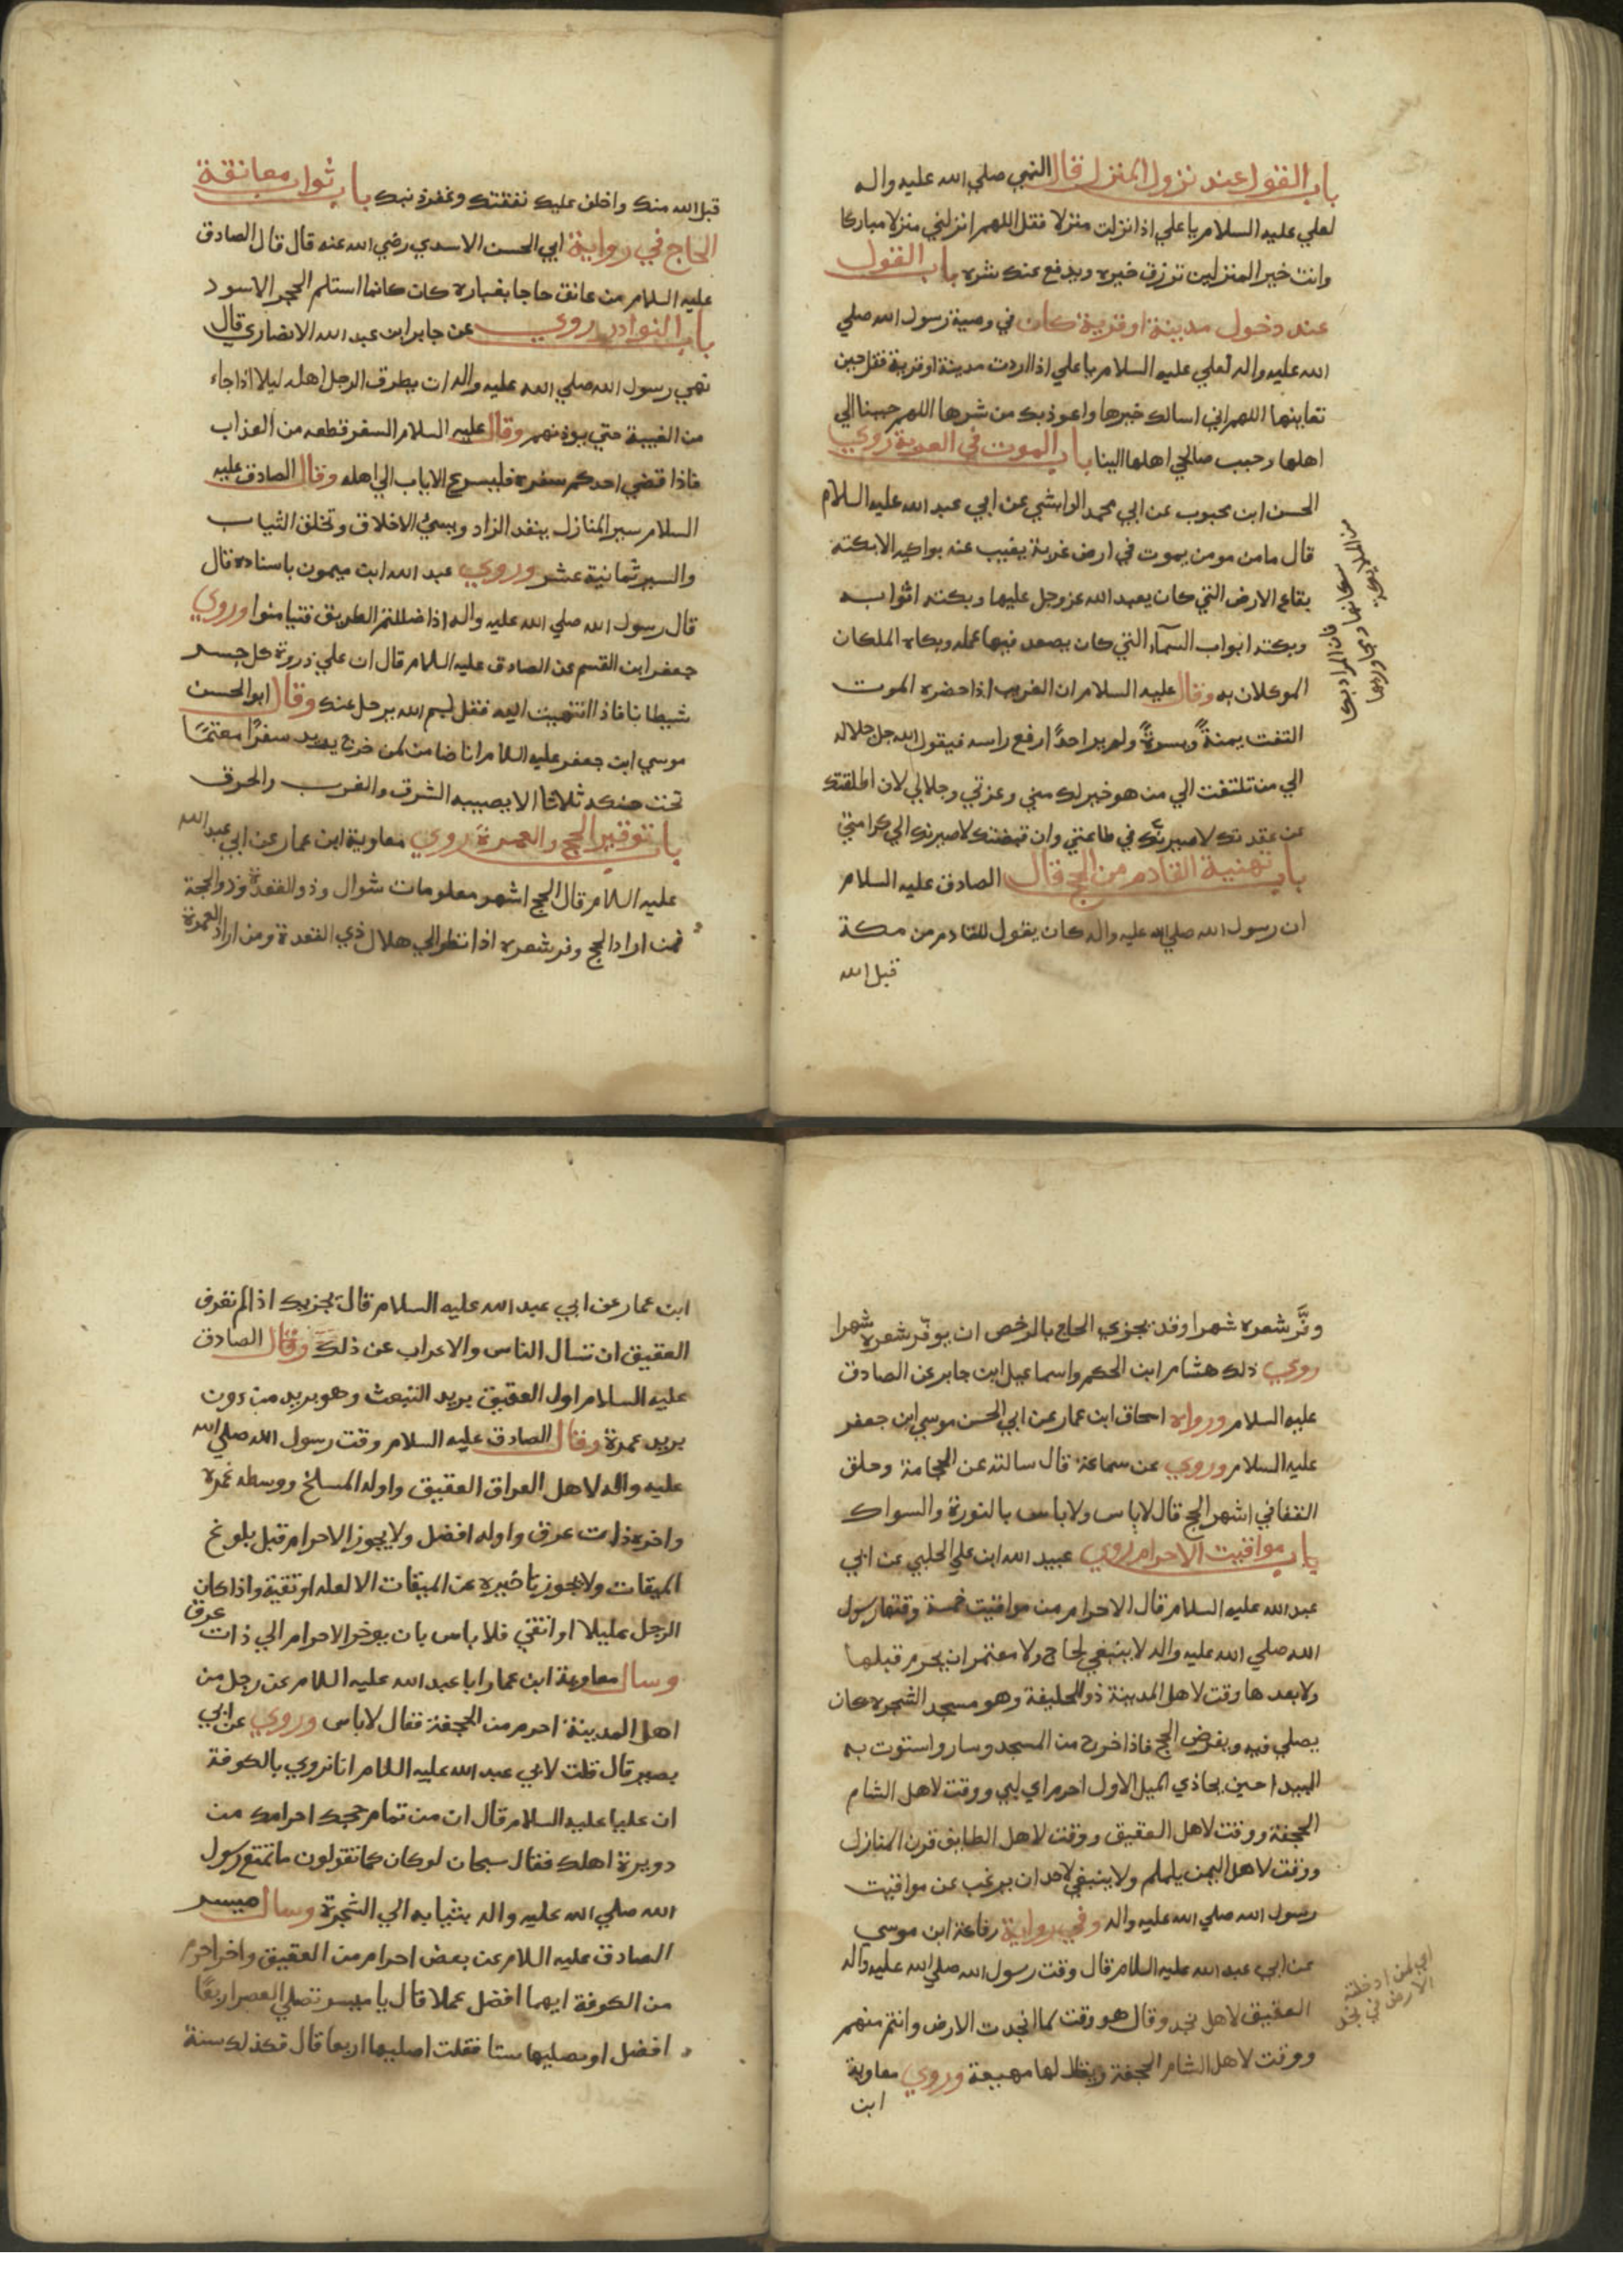 باب القول عند نزول المنزل قال النبي صلي الله عليه واله
لعلي عليه السلام يا علي اذا نزلت منزلا فقل اللهم انزلني منزلا مباركا
وانت خير المنزلين ترزق خيره ويدفع عنك شره باب القول
عند دخول مدينة او قرية كان في وصية رسول الله صلي
الله عليه واله لعلي عليه السلام يا علي اذا اردت مدينة او قرية فقل حين
تعاينها اللهم اني اسالك خيرها واعوذ بك من شرها اللهم حببنا الي
اهلها وحبب صالحي اهلها الينا باب الموت في الغربة روي
الحسن ابن محبوب عن ابي محمد الوابشي عن ابي عبد الله عليه السلام
قال ما من مومن يموت في ارض غربة يغيب عنه بواكيه الا بكته
بقاع الارض التي كان يعبد الله عز وجل عليها وبكته اثوابه
وبكته ابواب السماء التي كان يصعد فيها عمله وبكاه الملكان
الموكلان به وقال عليه السلام ان الغريب اذا حضره الموت
التفت يمنةً ويسرةً ولم ير احدًا رفع راسه فيقول الله جل جلاله
الي من تلتفت الي من هو خير لك مني وعزتي وجلالي لان اطلقتك
عن عقدتك لاصيرنك في طاعتي وان قبضتك لاصيرنك الي كرامتي
باب تهنية القادم من الحج قال الصادق عليه السلام
ان رسول الله صلي الله عليه واله كان يقول للقادم من مكة
قبل الله
فان المراد بكا
سكانها ومجاوريها
من الملايكة
قبل الله منك واخلف عليك نفقتك وغفر ذنبك باب ثواب معانقة
الحاج في رواية ابي الحسن الاسدي رضي الله عنه قال قال الصادق
عليه السلام من عانق حاجا بغباره كان كانما استلم الحجر الاسود
باب النوادر روي عن جابر ابن عبد الله الانصاري قال
نهي رسول الله صلي الله عليه واله ان يطرق الرجل اهله ليلا اذا جاء
من الغيبة حتي يوذنهم وقال عليه السلام السفر قطعه من العذاب
فاذا قضي احدكم سفره فليسرع الاياب الي اهله وقال الصادق عليه
السلام سير المنازل ينفد الزاد ويسيُ الاخلاق وتخلق الثياب
والسير ثمانية عشر وروي عبد الله ابن ميمون باسناده قال
قال رسول الله صلي الله عليه واله اذا ضللتم الطريق فتيامنوا وروي
جعفر ابن القسم عن الصادق عليه السلام قال ان علي ذروة كل جسر
شيطانا فاذا انتهيت اليه فقل بسم الله يرحل عنك وقال ابو الحسن
موسي ابن جعفر عليه السلام انا ضامن لمن خرج يريد سفرًا معتمًا
تحت حنكه ثلاثا الا يصيبه الشرق والغرب والحرق
باب توفير الحج والعمرة روي معاوية ابن عمار عن ابي عبد الله
عليه السلام قال الحج اشهر معلومات شوال وذو القعدة وذو الحجة
فمن اراد الحج وفر شعره اذا نظر الي هلال ذي القعدة ومن اراد العمرة
وفَّر شعره شهرا وقد يجزي الحاج بالرخص ان يوفّر شعره شهرا
روي ذلك هشام ابن الحكم واسماعيل ابن جابر عن الصادق
عليه السلام ورواه اسحاق ابن عمار عن ابي الحسن موسي ابن جعفر
عليه السلام وروي عن سماعة قال سالته عن الحجامة وحلق
القفا في اشهر الحج قال لا باس ولا باس بالنورة والسواك
باب مواقيت الاحرام روي عبيد الله ابن علي الحلبي عن ابي
عبد الله عليه السلام قال الاحرام من مواقيت خمسة وقتها رسول
الله صلي الله عليه واله لا ينبغي لحاج ولا معتمر ان يحرم قبلها
ولا بعدها وقت لاهل المدينة ذو الحليفة وهو مسجد الشجره كان
يصلي فيه ويفرض الحج فاذا خرج من المسجد وسار واستوت به
البيدا حين يحاذي الميل الاول احرم اي لبي ووقت لاهل الشام
الجحفة ووقت لاهل العقيق ووقت لاهل الطايف قرن المنازل
ووقت لاهل اليمن يلملم ولا ينبغي لاحد ان يرغب عن مواقيت
رسول الله صلي الله عليه واله وفي رواية رفاعة ابن موسي
عن ابي عبد الله عليه السلام قال وقت رسول الله صلي الله عليه واله
العقيق لاهل نجد وقال هو وقت لما انجدت الارض وانتم منهم
ووقت لاهل الشام الجحفة ويقال لها مهيعة وروي معاوية
ابن
اي لمن ادخلته
الارض في نجد
ابن عمار عن ابي عبد الله عليه السلام قال يجزيك اذا لم تعرف
العقيق ان تسال الناس والاعراب عن ذلك وقال الصادق
عليه السلام اول العقيق بريد البعث وهو بريد من دون
بريد غمرة وقال الصادق عليه السلام وقت رسول الله صلي الله
عليه واله لاهل العراق العقيق واوله المسلخ ووسطه غمره
واخره ذات عرق واوله افضل ولا يجوز الاحرام قبل بلوغ
الميقات ولا يجوز تاخيره عن الميقات الا لعله او تقية واذا كان
الرجل عليلا او اتقي فلا باس بان يوخر الاحرام الي ذات عرق
وسال معاوية ابن عمار ابا عبد الله عليه السلام عن رجل من
اهل المدينة احرم من الجحفة فقال لا باس وروي عن ابي
بصير قال قلت لابي عبد الله عليه السلام انا نروي بالكوفة
ان عليا عليه السلام قال ان من تمام حجك احرامك من
دويرة اهلك فقال سبحان لو كان كما تقولون ما تمتع رسول
الله صلي الله عليه واله بثيابه الي الشجرة وسال ميسر
الصادق عليه السلام عن بعض احرام من العقيق واخر احرم
من الكوفة ايهما افضل عملا قال يا ميسر تصلي العصر اربعًا
افضل او تصليها ستا فقلت اصليها اربعا قال فكذلك سنة